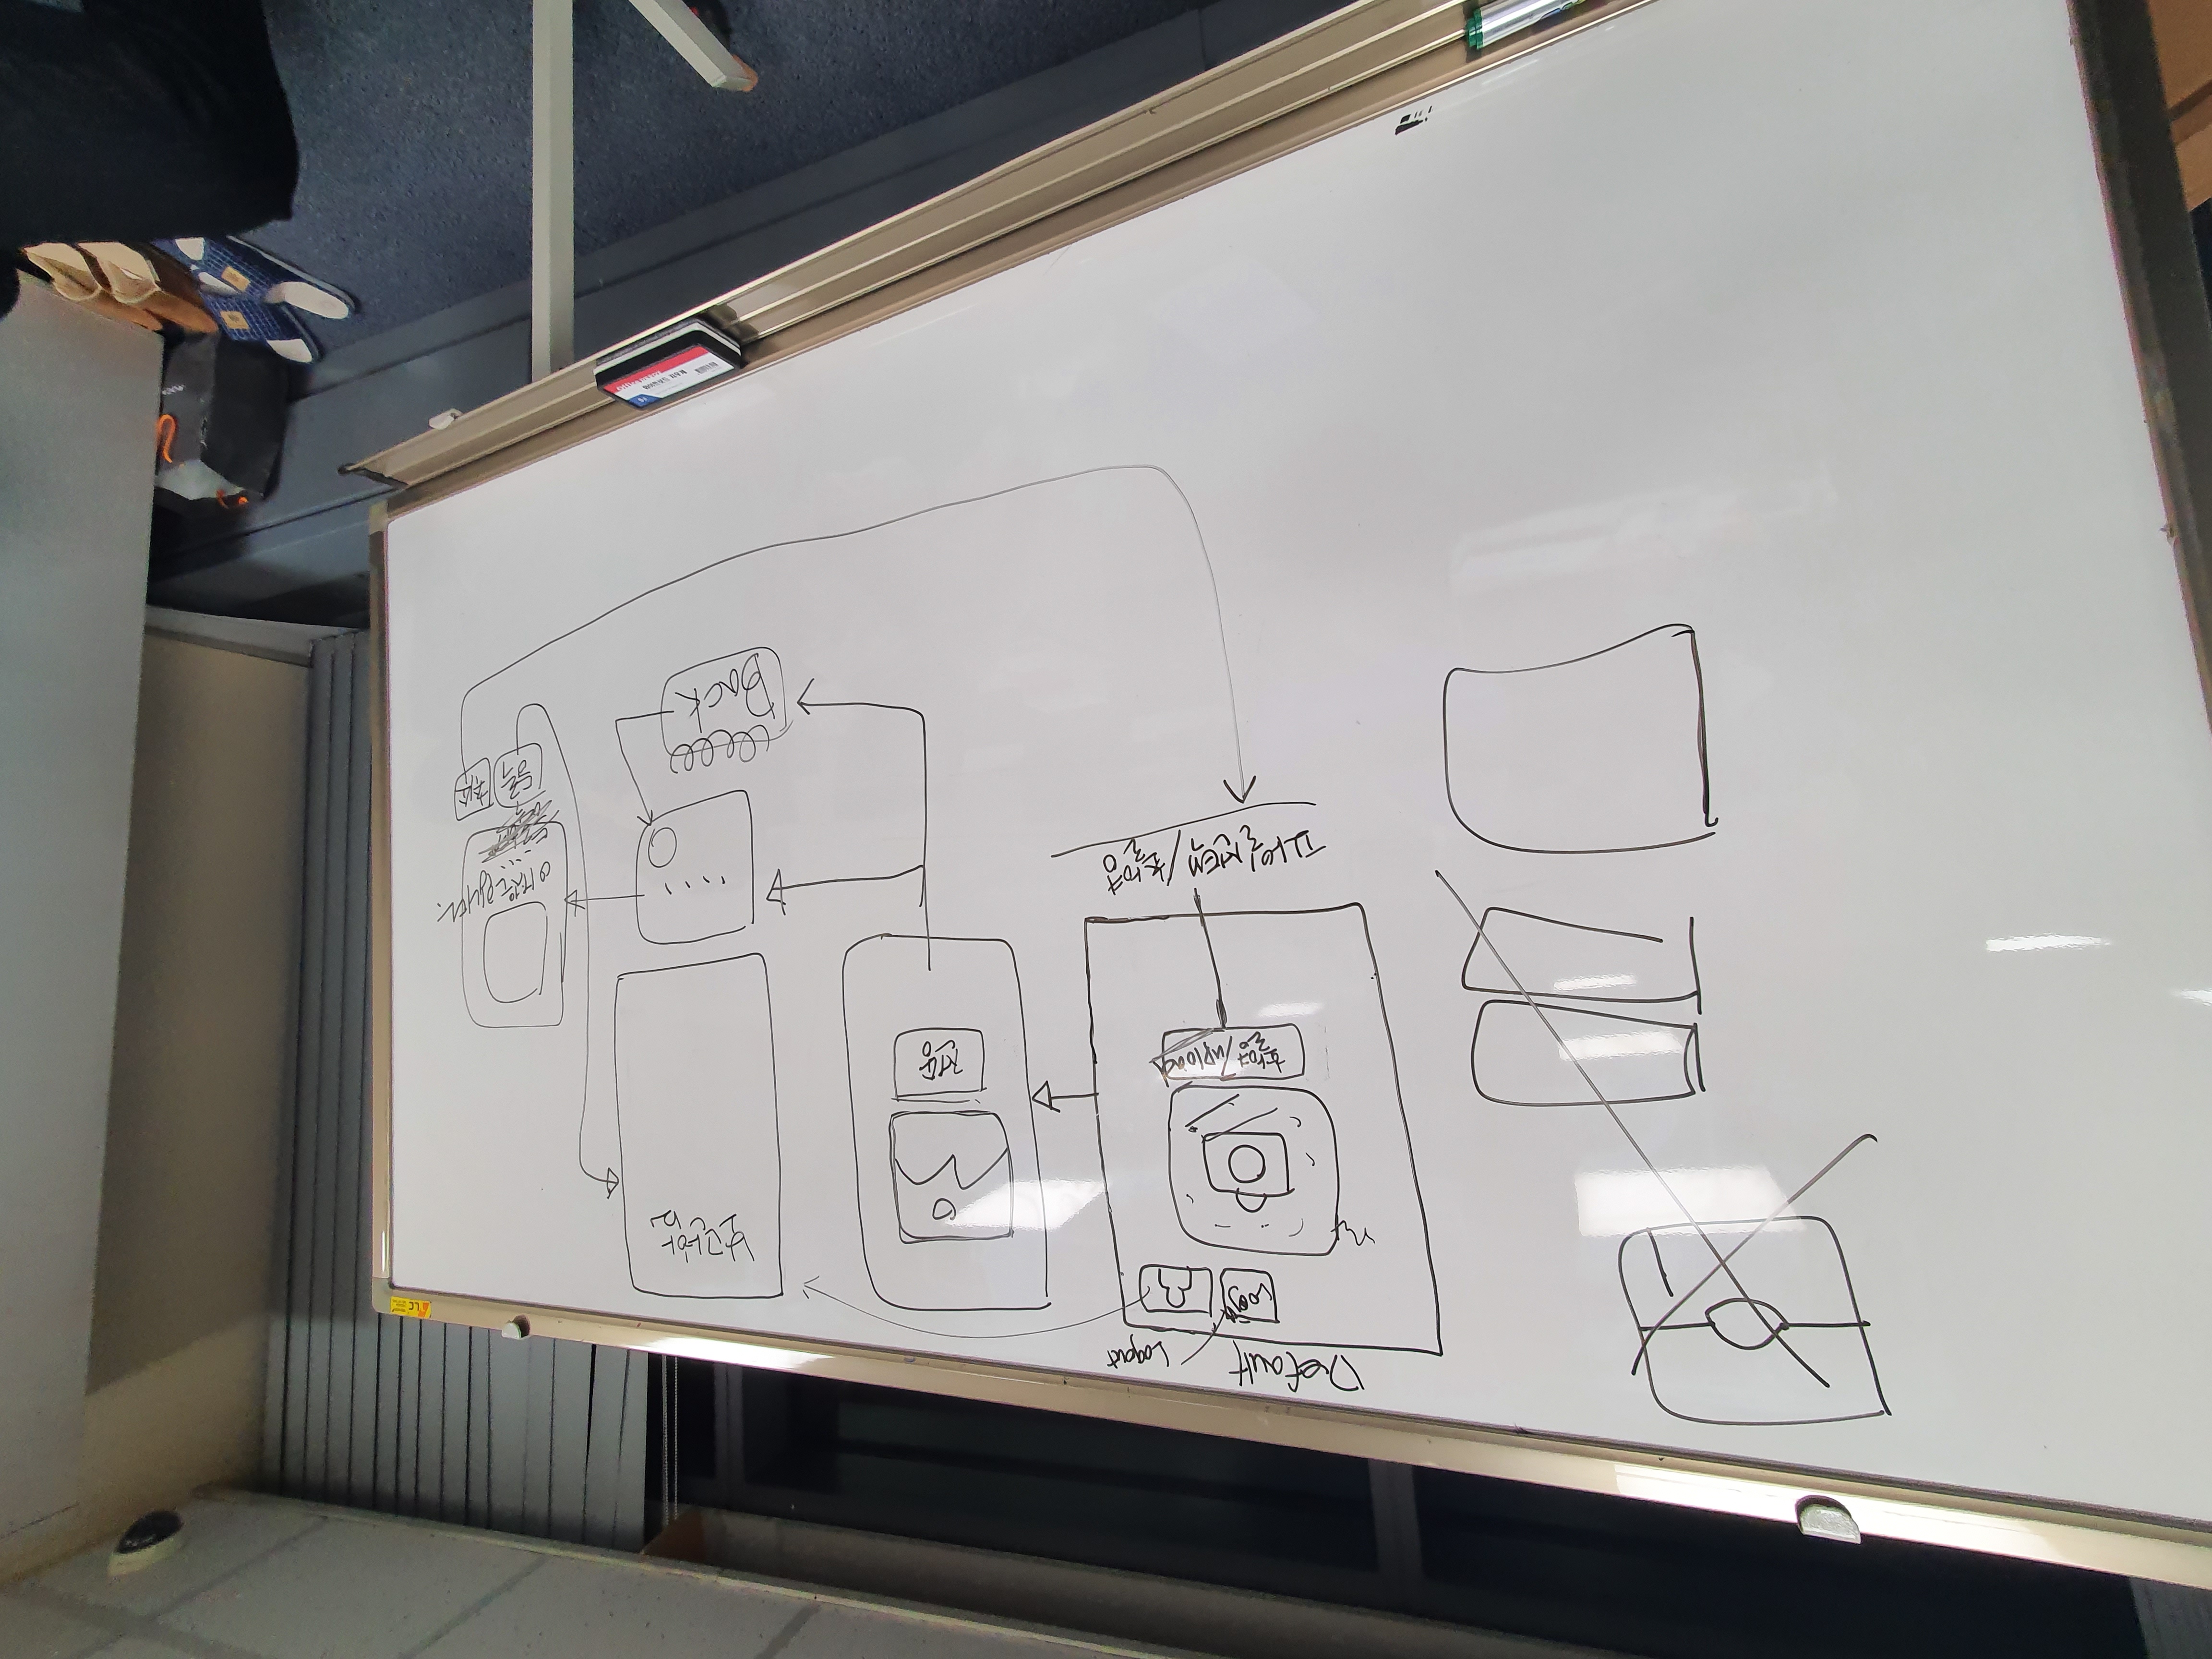 Default
Logout
Login
촬영/upload
파일선택/촬영
전송
보관함
이것은
....입니다.
등록
취소
Back
LC